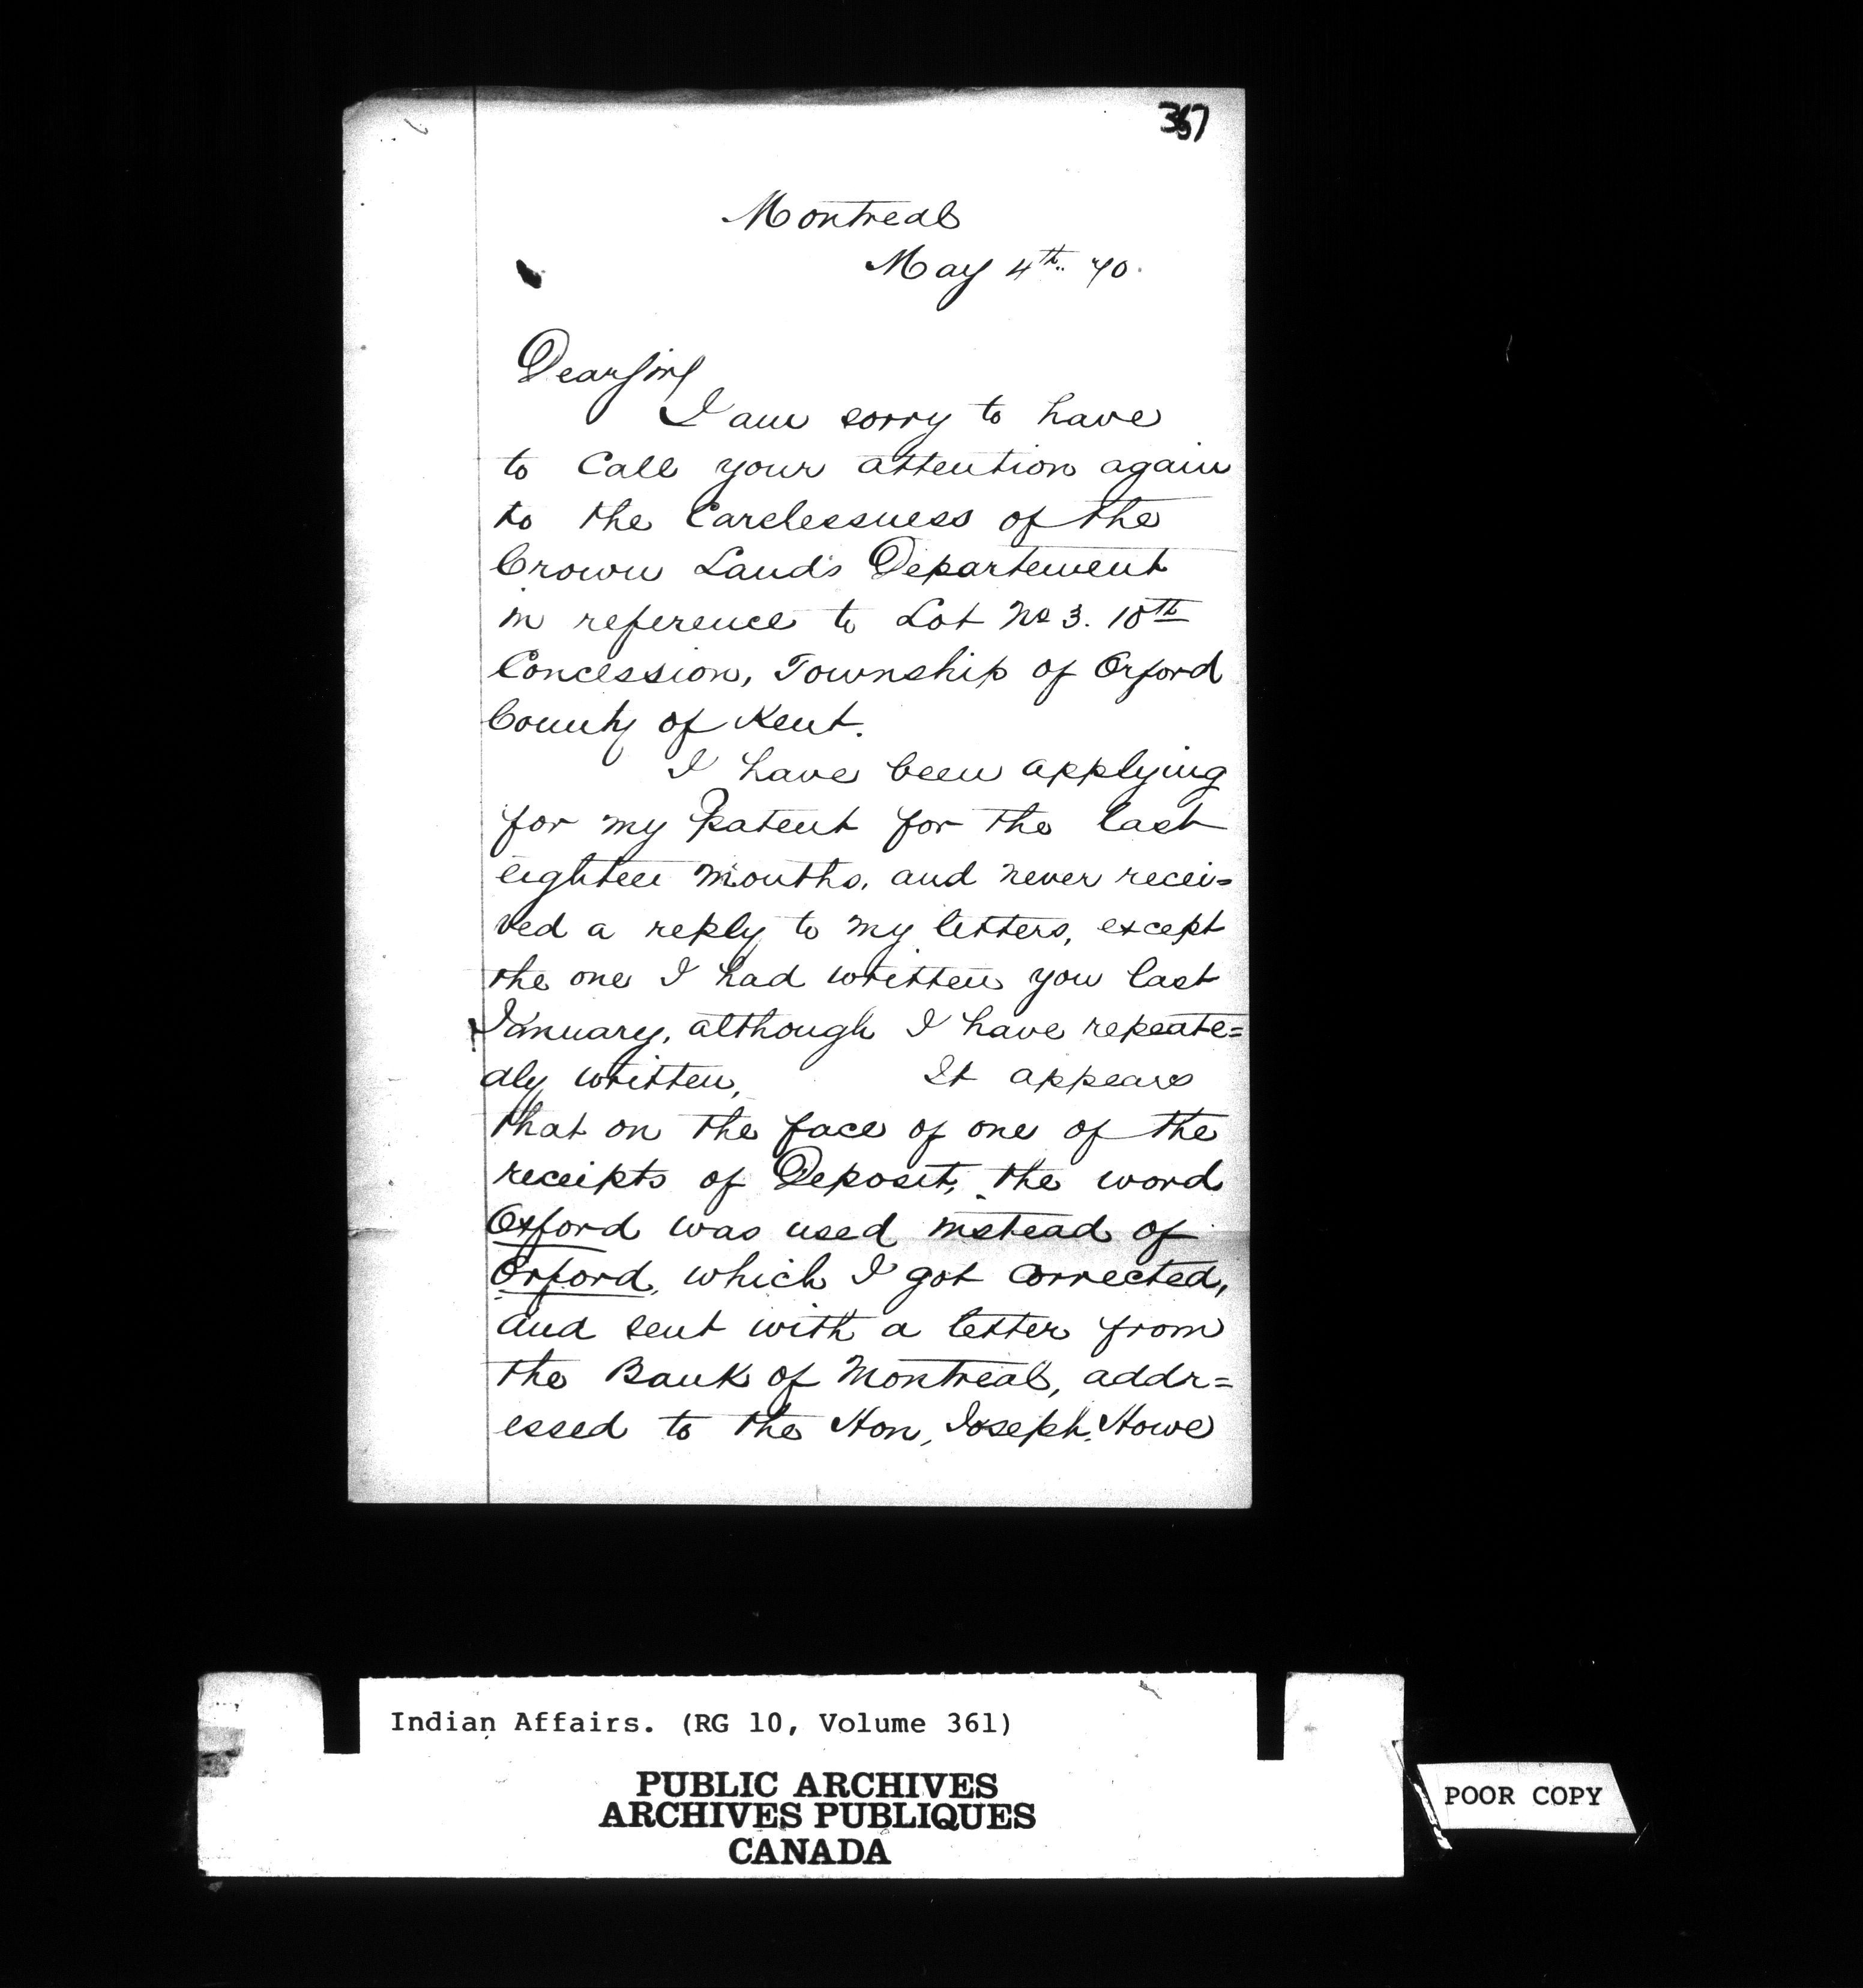 367
Montreal
May 4th. 70.
Dear Sir
I am sorry to have
to Call your attention again
to the Carelessness of the
Crown Lands Departement
in reference to Lot No 3. 10th
Concession, Township of Orford
County of Kent.
I have been applying
for my Patent for the last
eighteen months, and never recei=
ved a reply to my letters, except
the one I had written you last
January, although I have repeate=
dly written, It appears
that on the face of one of the
receipts of Deposit, the word
Oxford was used instead of
Orford, which I got corrected,
and sent with a letter from
the Bank of Montreal, addr=
essed to the Hon, Joseph Howe
Indian Affairs. (RG 10, Volume 361)
PUBLIC ARCHIVES
ARCHIVES PUBLIQUES
CANADA
POOR COPY